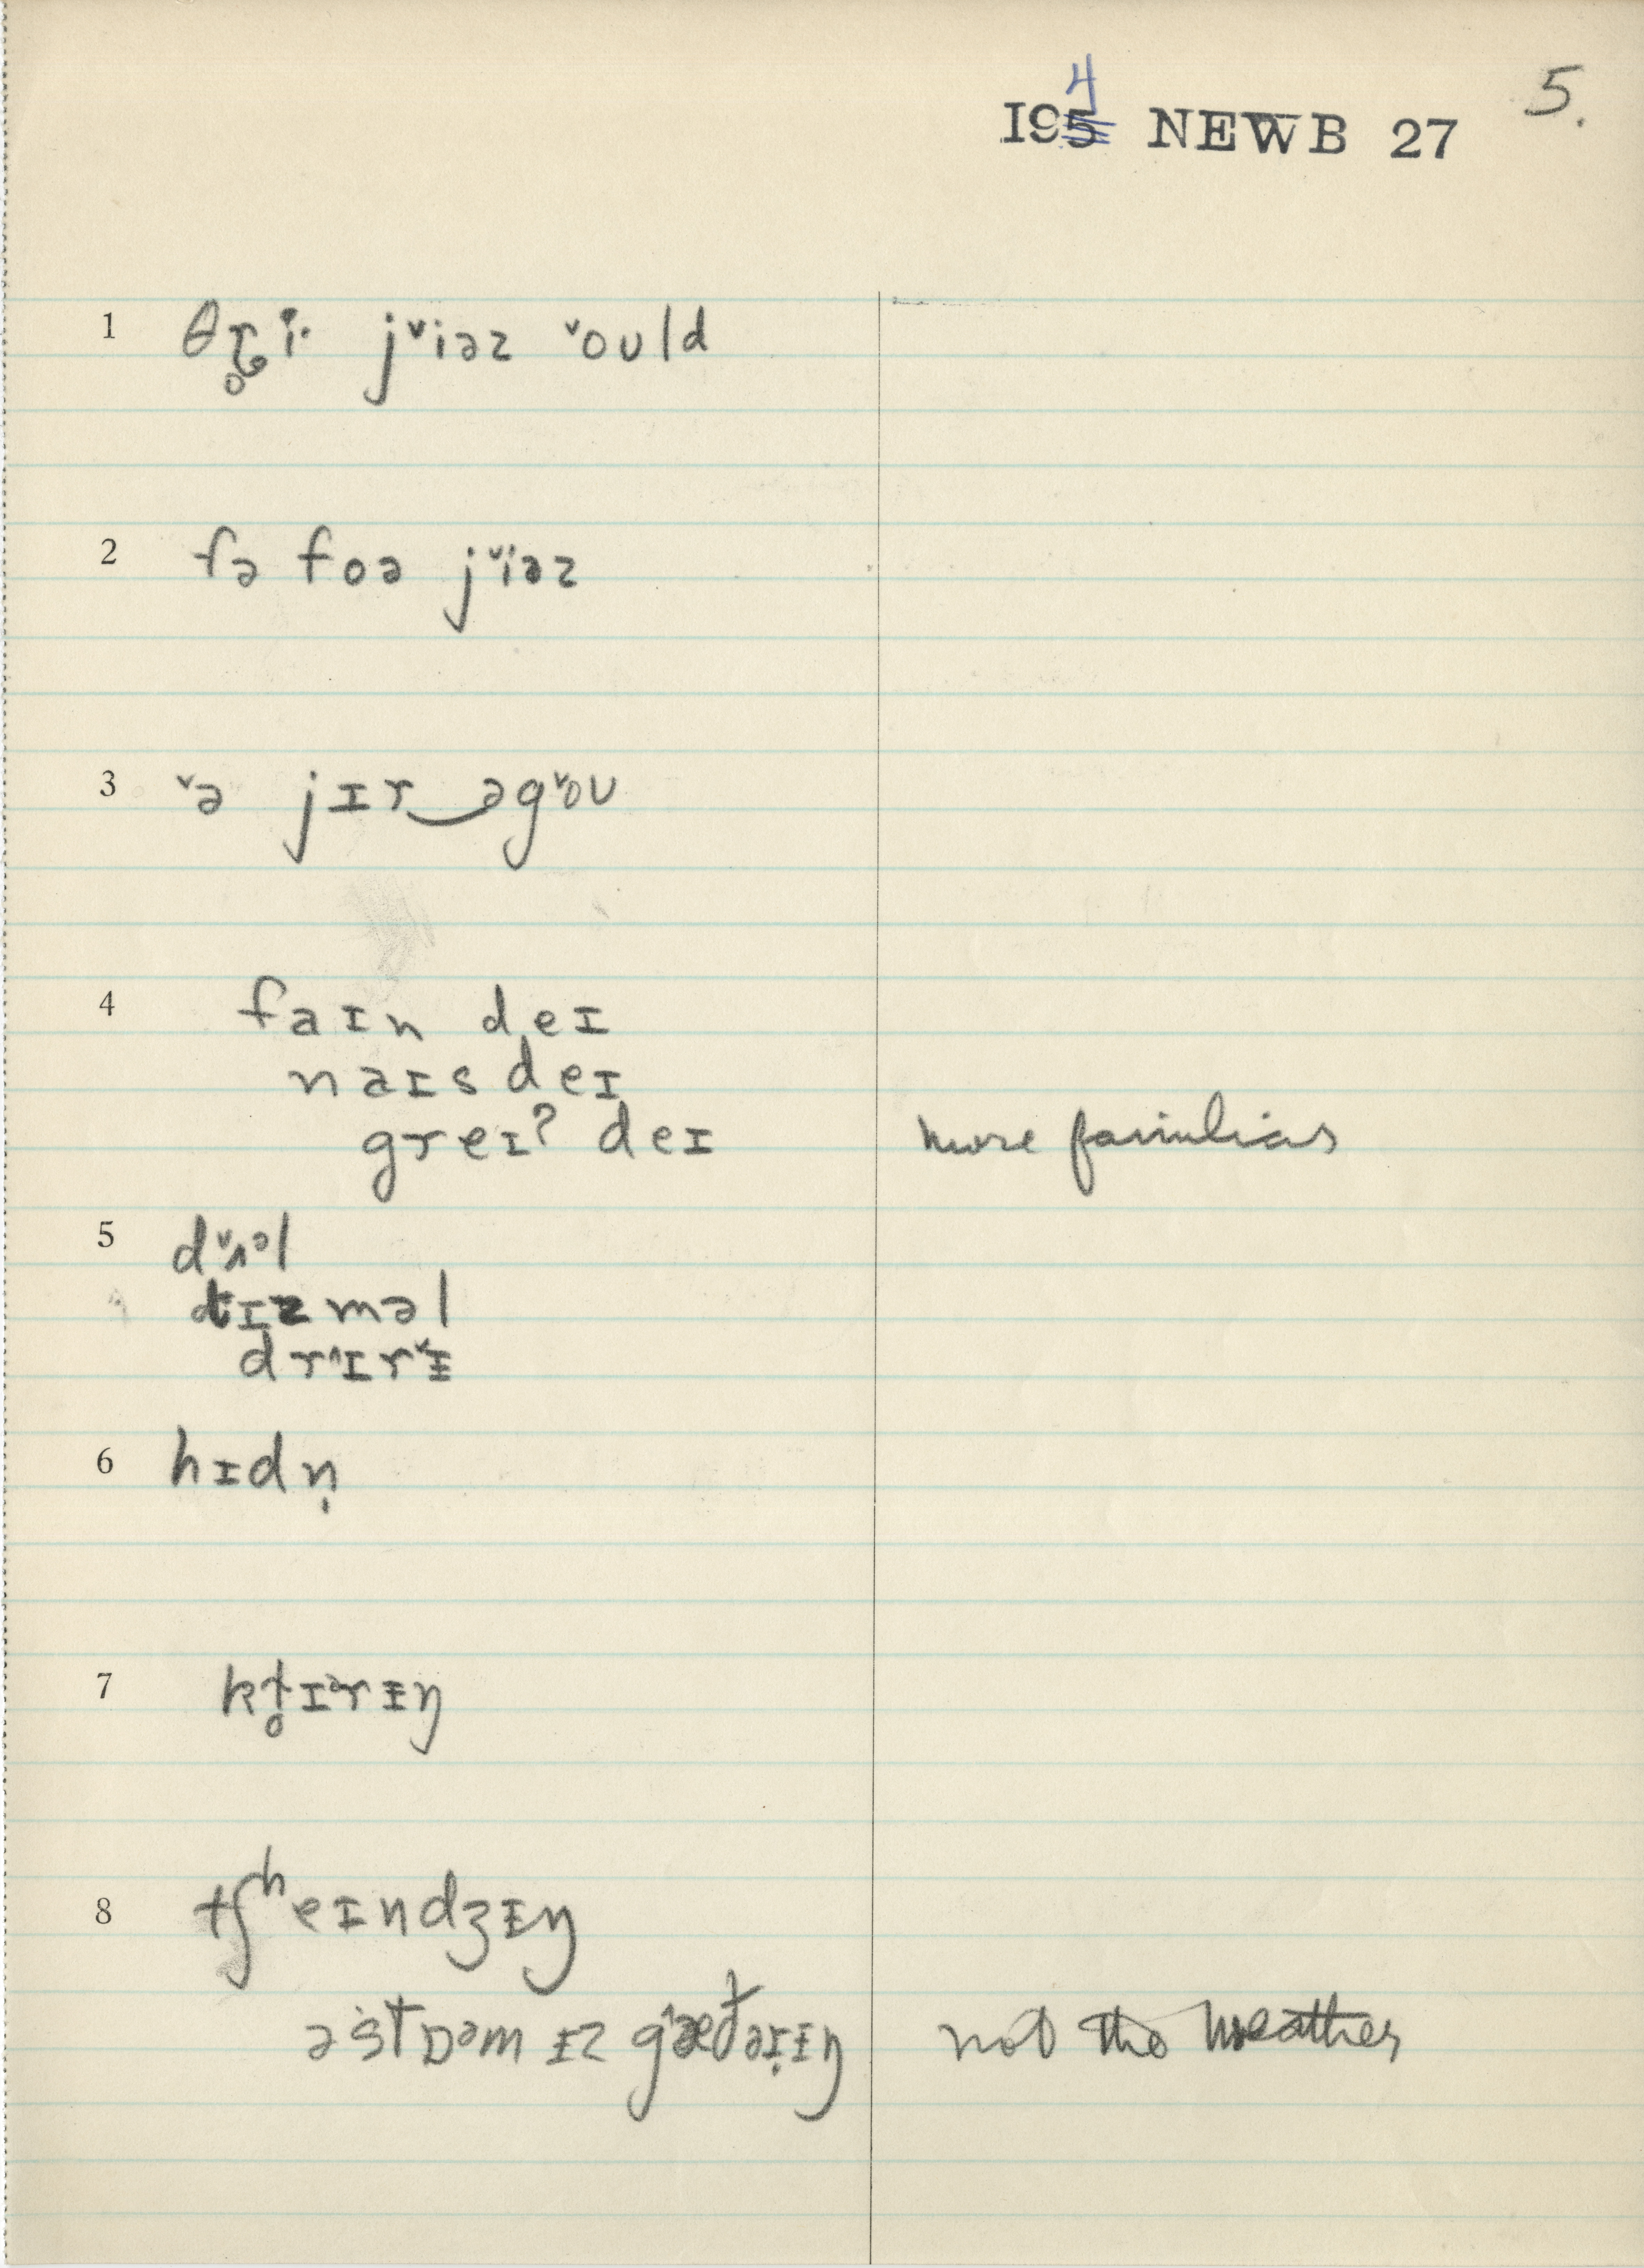 I954 NEWB 27 5.
1 θɽ̊i· j˅iəz ˅oʊld
2 fə foə j˅iəz
3 ˅ə jɪr‿əg˅oʊ
4 faɪn deɪ
naɪs deɪ
greɪʔ deɪ more familiar
5 d˅ʌᵊl
dɪzməl
dr˄ɪr˅ɨ
6 hɪdn̩
7 kɫ̥ɪᵊrɪŋ
8 tʃʰeɪndʒɪŋ
ə stɒᵊm ɪz g˄æðərɪŋ not the weather